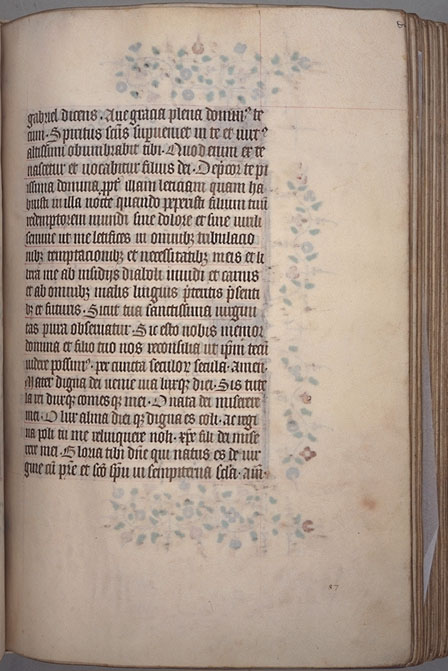 gabriel dicens. Aue gracia plena domin⁹ te
cum. Spiritus sc̄us supueniet in te et uirt⁹
altissimi obumbrabit tibi. Quod enim ex te
nascetur et uocabitur filius dei. Dep̄cor te pi
issima domina ꝓpt̄ illam leticiam quam ha
buisti in illa nocte quando peperisti filium tuū
redemptorem mundi sine dolore et sine uirili
semine ut me letifices in omnibꝫ tribulacio
nibꝫ temptacionibꝫ et necessitatibꝫ meis et li
bera me ab insidijs diaboli mundi et carnis
et ab omnibꝫ malis linguis p̄teritis p̄senti
bꝫ et futuris. Sicut tua sanctissima uirgini
tas pura obseruatur. Sic esto nobis memor
domina et filio tuo nos reconsilia ut ip̄m tecū
uidere possim⁹. per cuncta seculor secula. amen.
Mater digna dei uenie uia luxqꝫ diei. Sis tute
la rei duxqꝫ comesqꝫ mei. O nata dei miserere
mei. O lux alma diei qꝫ digna es coli. ac regi
na poli tu me relinquere noli. xp̄e fili dei mise
rere mei. Gloria tibi dn̄e qui natus es de uir
gine cū pr̄e et sc̄o sp̄u in sempiterna sc̄la. am̄.
27